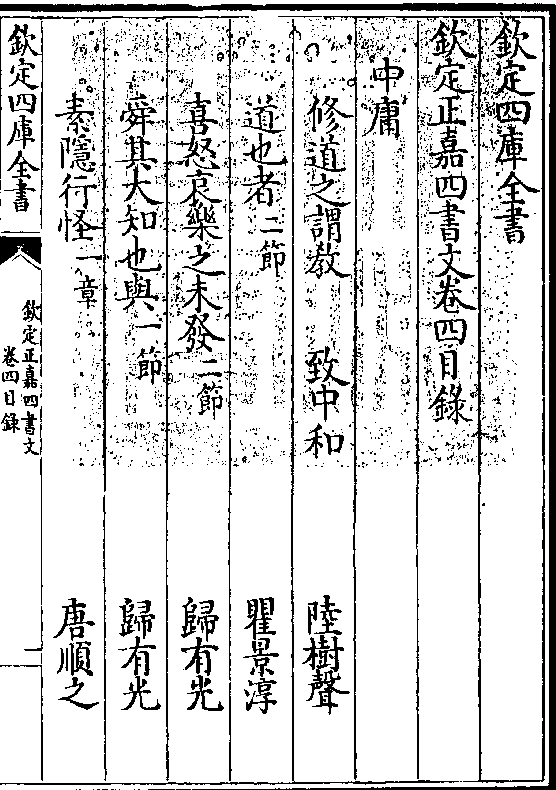 欽定四庫全書
欽定正嘉四書文卷四目錄
中庸
修道之謂教　致中和　陸樹聲
道也者二節　瞿景淳
喜怒哀樂之未發二節　歸有光
舜其大知也與一節　歸有光
素隱行怪一章　唐順之
欽定四庫全書
欽定正嘉四書文
卷四目錄
一